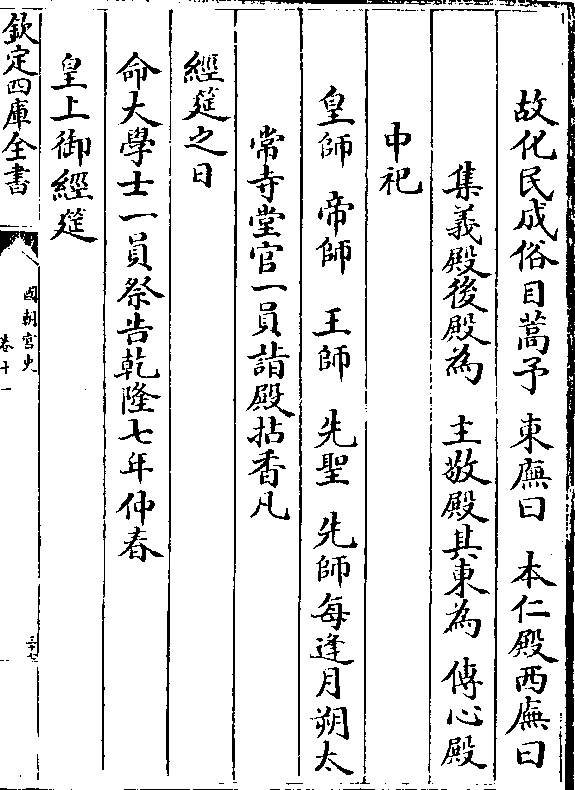 故化民成俗目蒿予　東廡曰　本仁殿西廡曰
集義殿後殿為　主敬殿其東為　傳心殿
中祀
皇師　帝師　王師　先聖　先師每逢月朔太
常寺堂官一員詣殿拈香凡
經筵之日
命大學士一員祭告乾隆七年仲春
皇上御經筵
欽定四庫全書
國朝宮史
卷十一